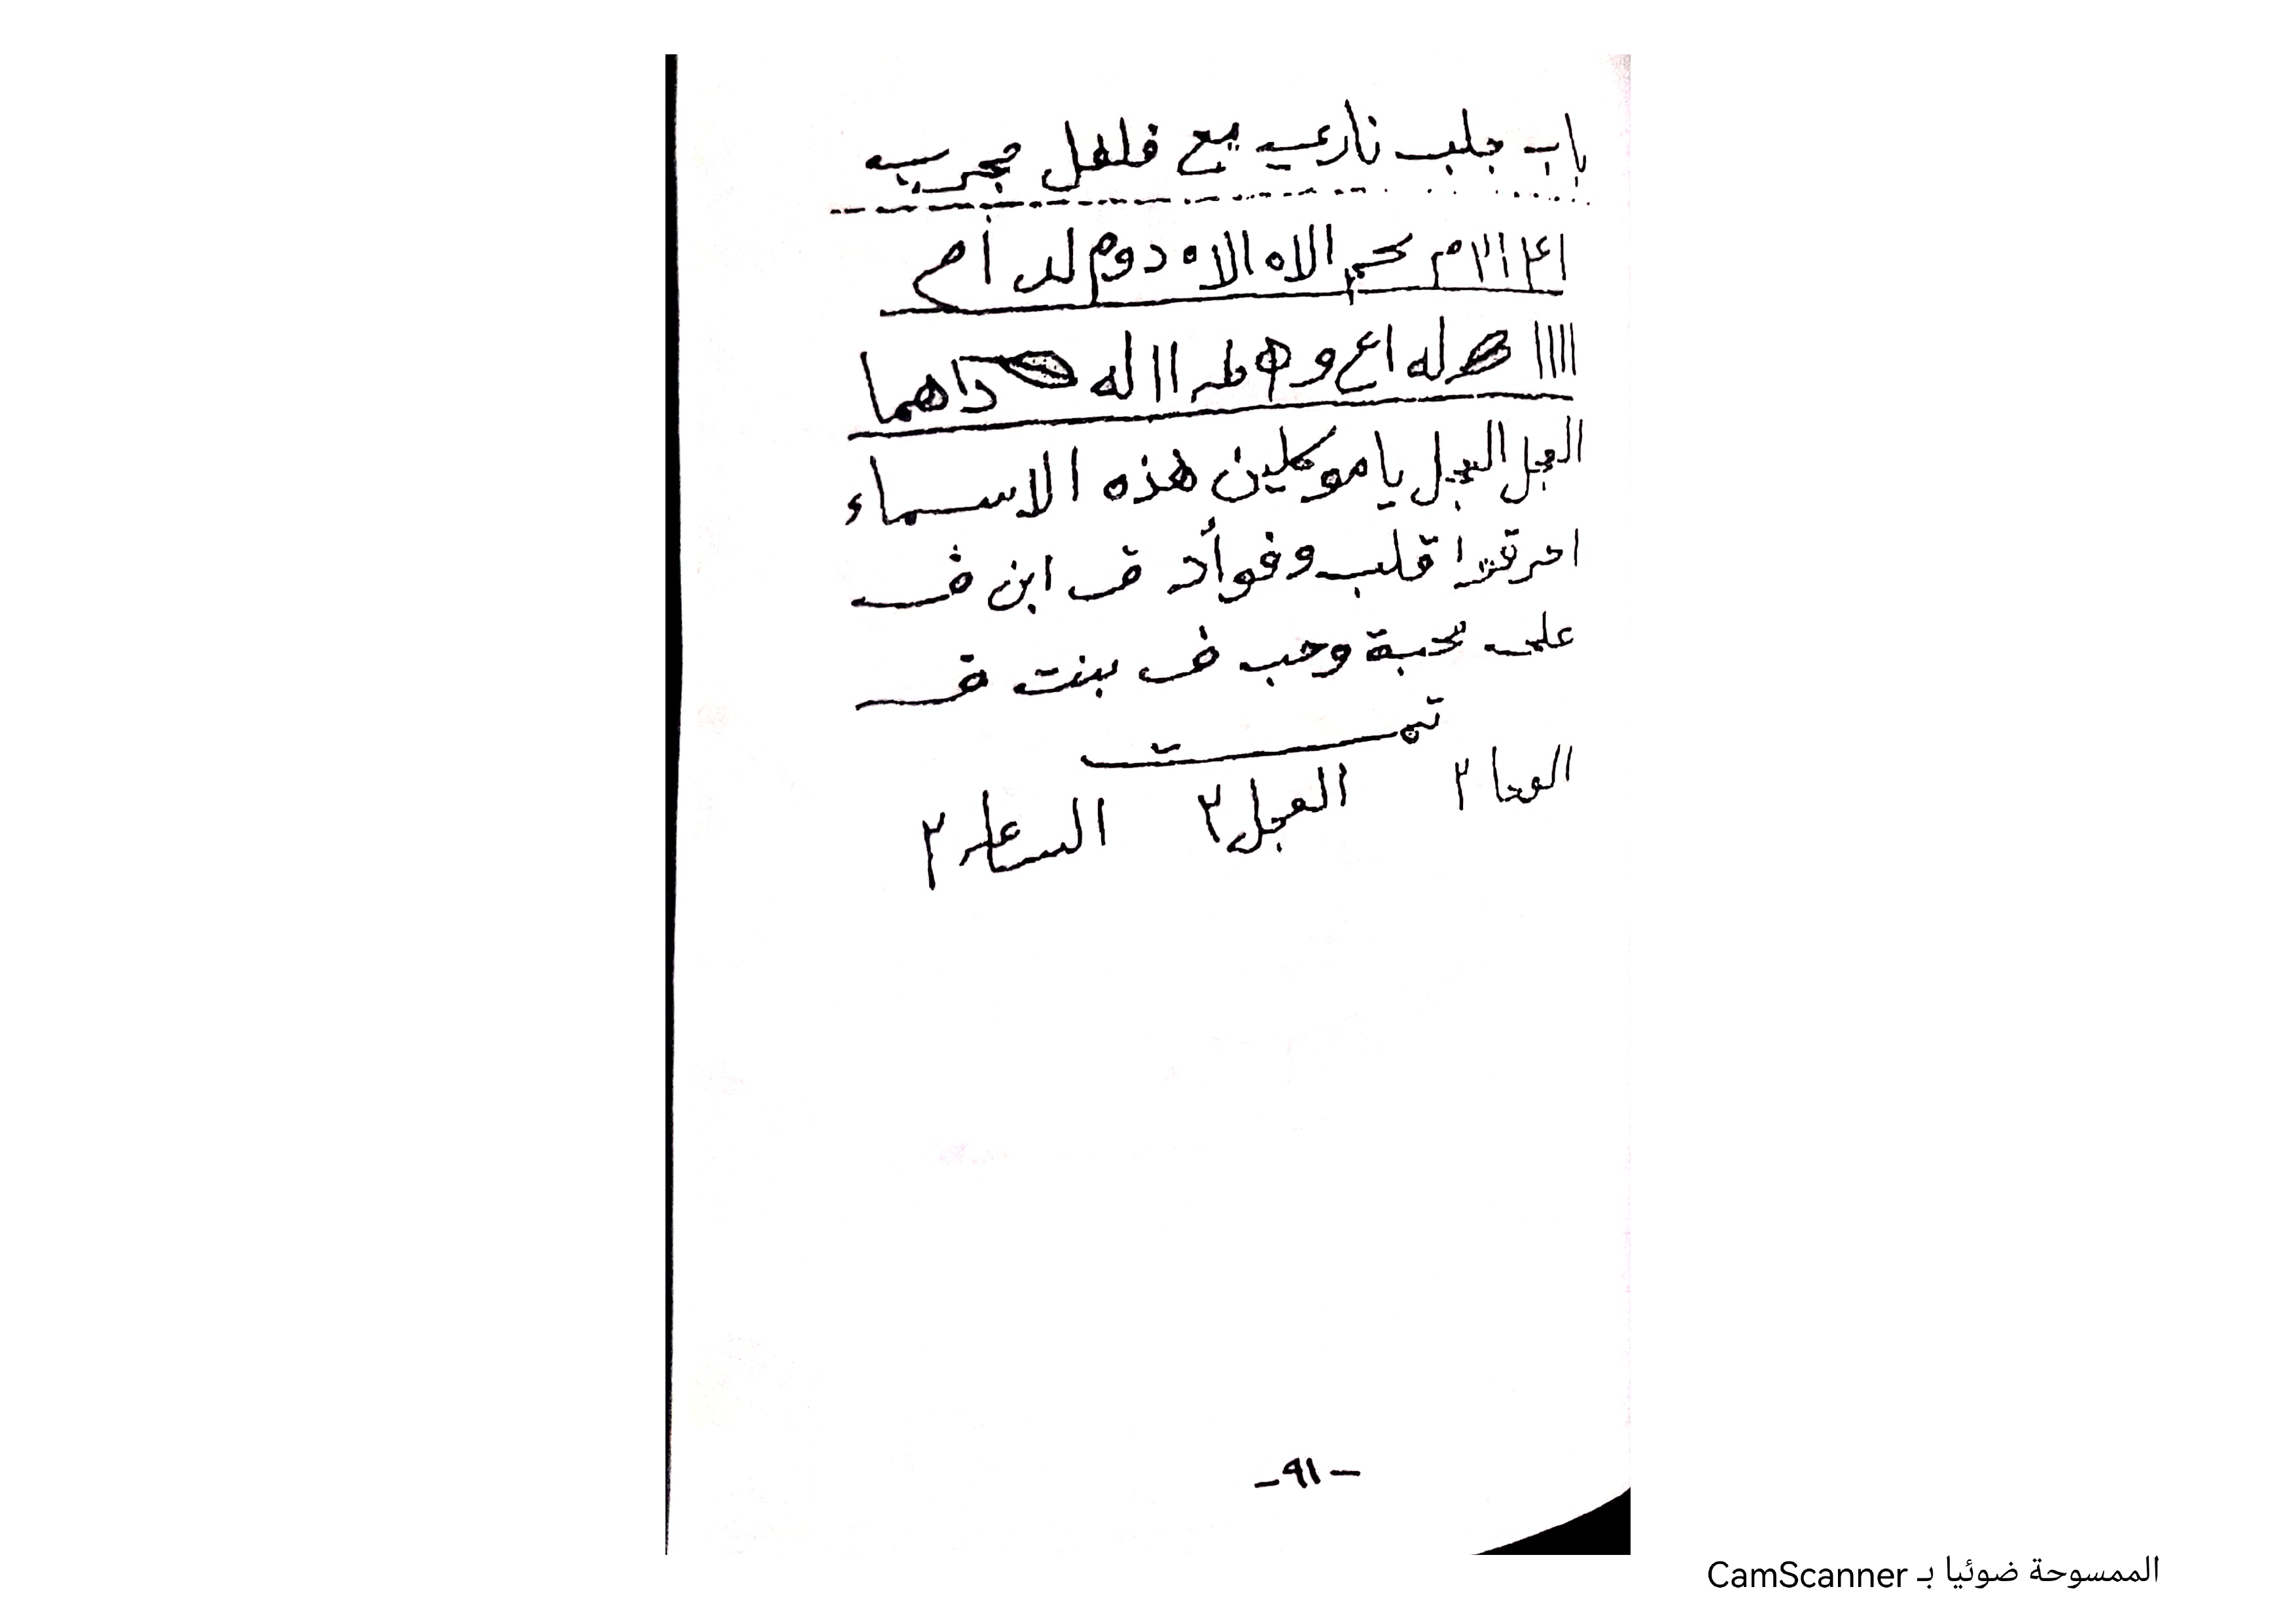 باب جلب ناري مع فلفل مجرب
الاه الاه دوم لد أم
له اع و االه داهما
العجل العجل يا موكلين هذه الاسماء
احرقوا قلب وفوأد ف ابن ف
على محبة وحب ف بنت ف
تمت
الوحا ٣ العجل ٣ الساعه ٣
- ٩١ -
الممسوحة ضوئيا بـ CamScanner